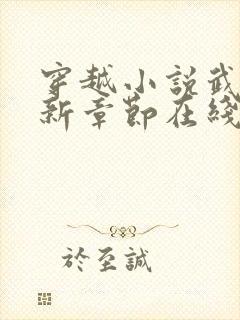 穿越小說武
新章節在綫
於至誠